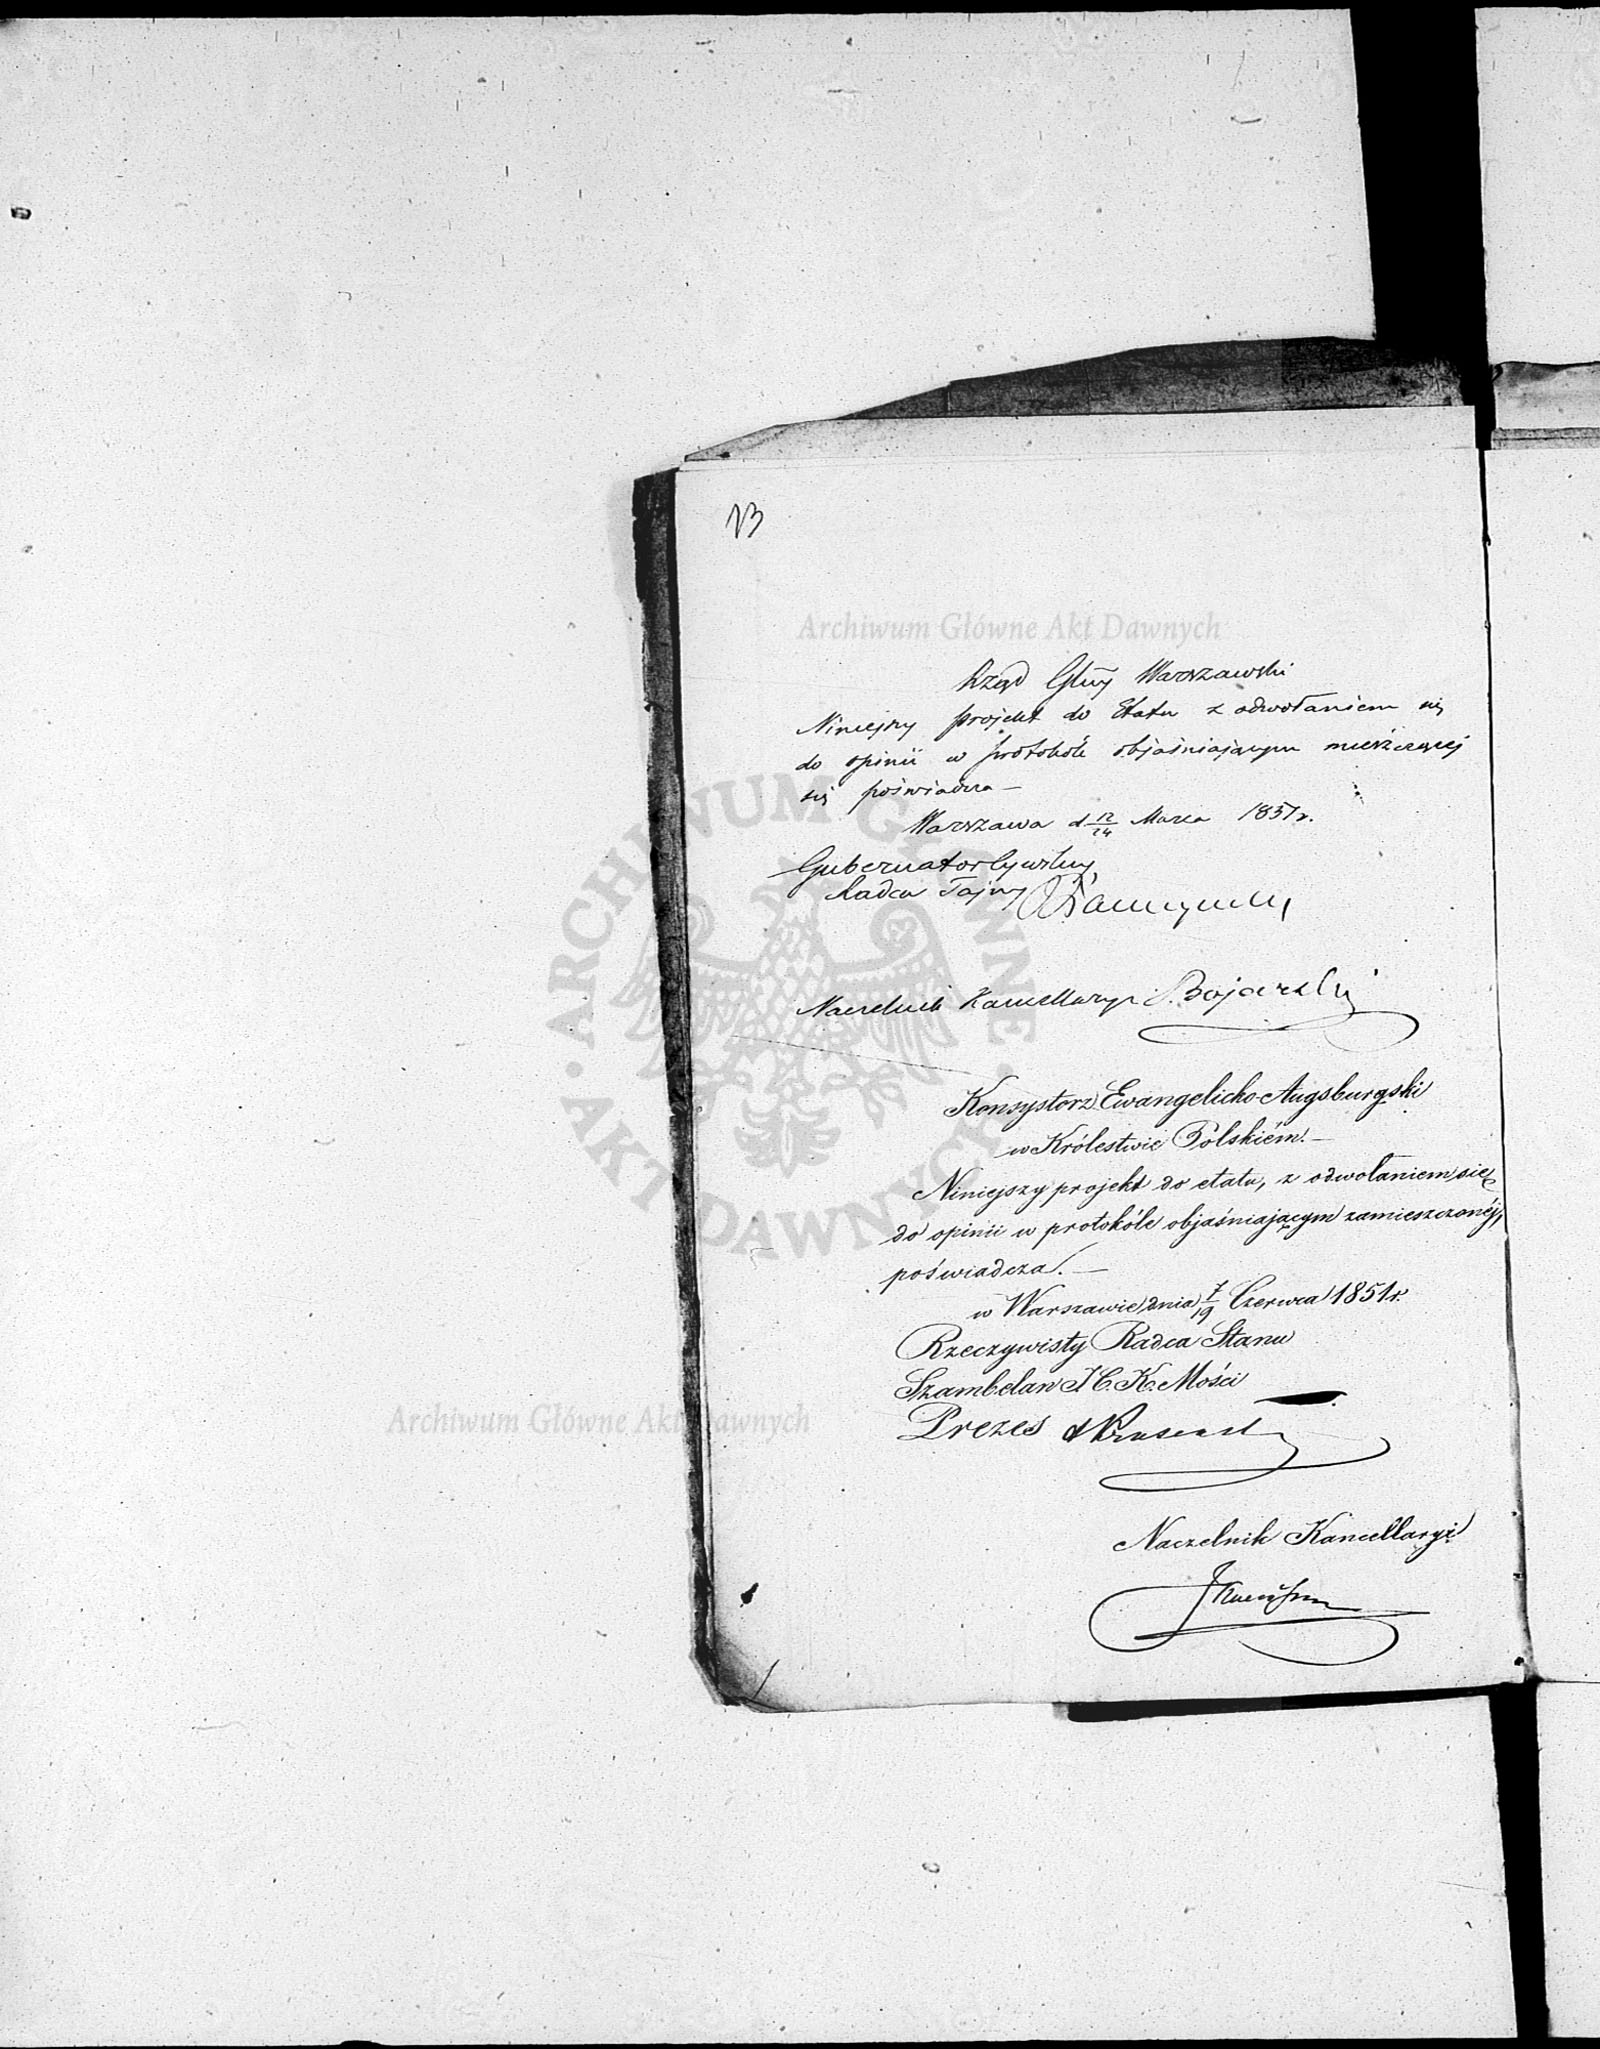 13
Archiwum Główne Akt Dawnych
Rząd Glny Warszawski
Niniejszy projekt do Etatu z odwołaniem się
do opinii w protokóle objaśniającym mieszczącej
się poświadcza —
Warszawa d 12/24 Marca 1851 r.
Gubernator Cywilny
Radca Tajny
Naczelnik Kancellaryi Bojarski
ARCHIWUM GŁÓWNE · AKT DAWNYCH ·
Konsystorz Ewangelicko-Augsburgski
w Królestwie Polskiém. —
Niniejszy projekt do etatu, z odwołaniem się
do opinii w protokóle objaśniającym zamieszczonéj,
poświadcza. —
w Warszawie dnia 7/19 Czerwca 1851 r.
Rzeczywisty Radca Stanu
Szambelan J. C. K. Mości
Archiwum Główne Akt Dawnych
Prezes
Naczelnik Kancellaryi